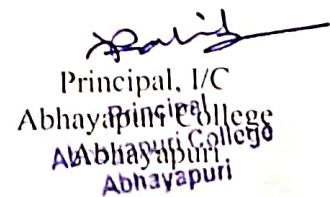 Principal, I/C
Abhayapuri College
Abhayapuri
Principal
Abhayapuri College
Abhayapuri